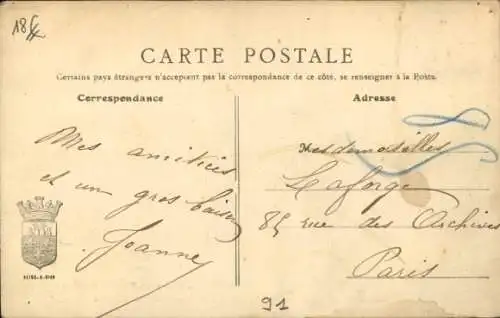 CARTE POSTALE
Certains pays étrangers n'acceptent pas la correspondance de ce côté, se renseigner à la Poste.
Correspondance
Adresse
Mes amitiés
et un gros baiser
Joanne
Mesdemoiselles
Laforge
85 rue des Archives
Paris
91